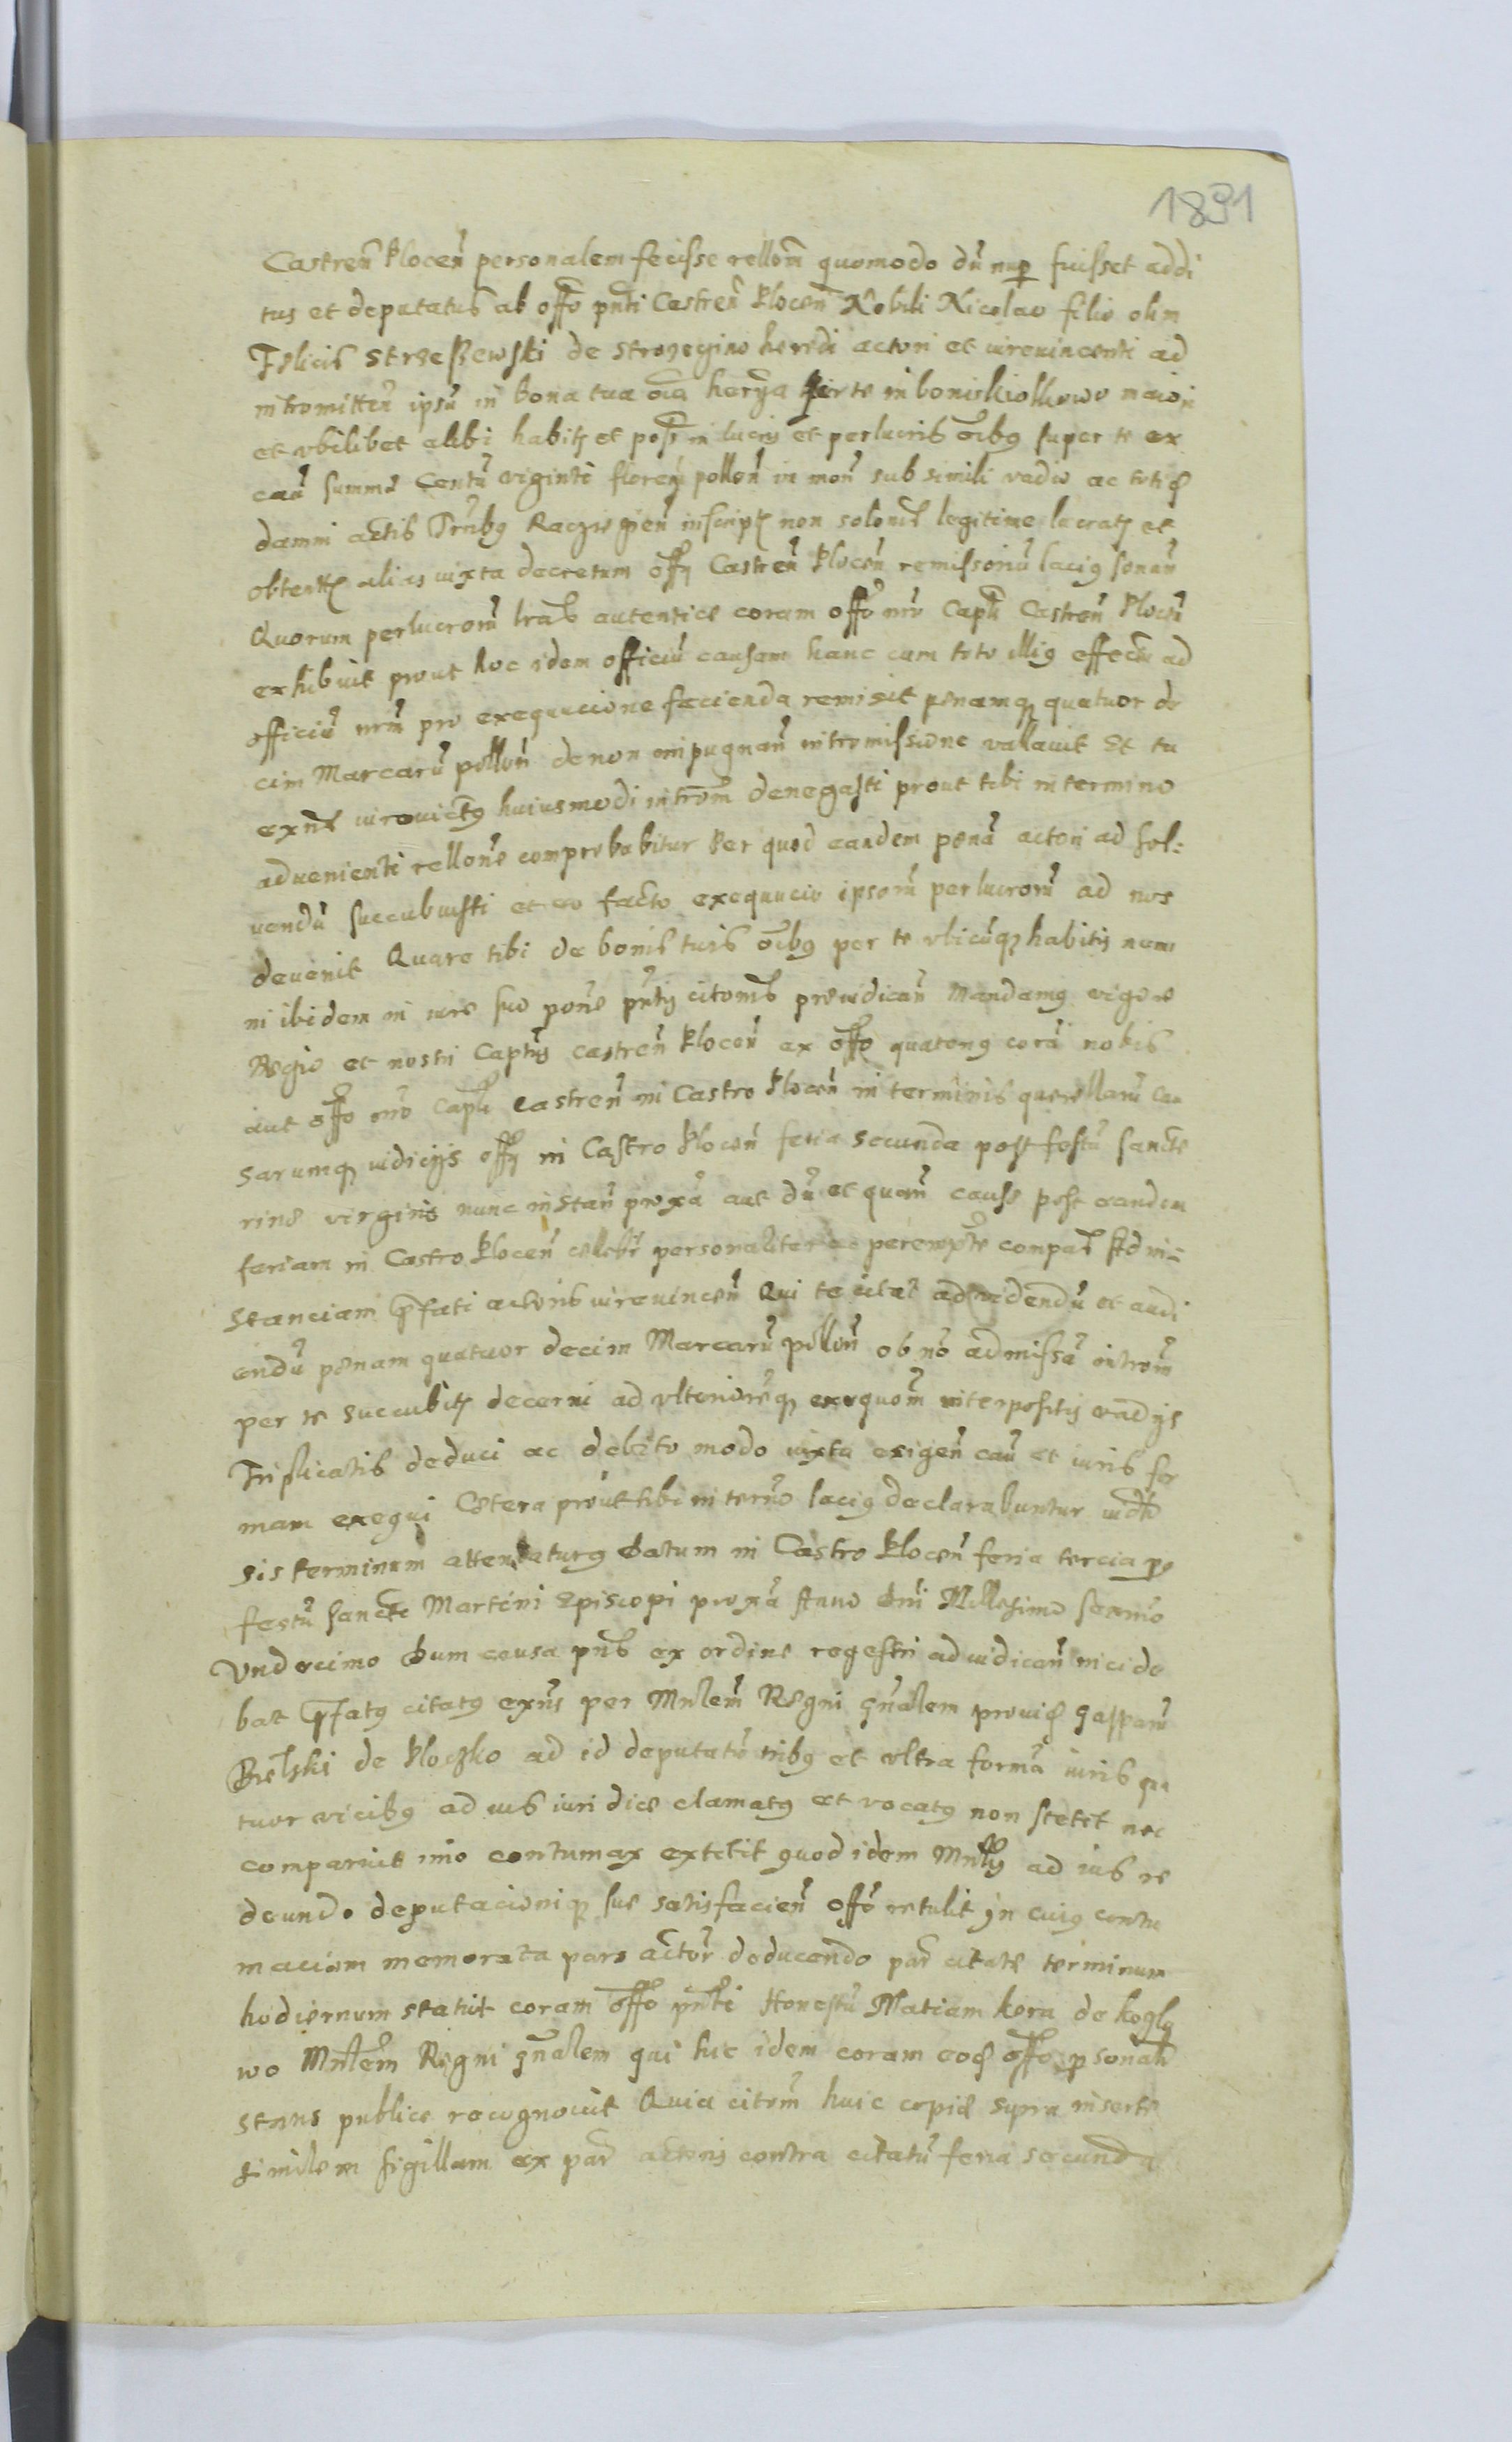 1891
Castreñ Plocen̄ personalem fecisse rellom̄ quomodo dū nup fuisset addi
tus et deputatus ab offo pn̄ti Castren̄ Plocen̄ Nobili Nicolao filio olim
Felicis Strzeszewski de Strozegino heredi actori et iurevincenti ad
intromitten̄ ipsū in bona tua oīa herīa per te in bonis kiolkowo maiori
et vbilibet alibi habitȝ et poss in lucris et perlucris oībȝ super te ex
caū summa Centū viginti floren̄ pollon̄ in mon̄ sub simili vadio ac totiȝ
damni actis Trrībȝ Racziogien̄ inscriptȝ non solonis legitime lucratȝ et
obtentȝ alias iuxta decretum offȝ Castren̄ Plocen̄ remissionū laciȝ sonan̄
Quorum perlucrorū lrās autentice coram offo nrō Capli Castren̄ Plocen̄
exhibuit prout hoc idem officiū causam hanc cum toto illiȝ effectu ad
officiū nrm̄ pro exequucione facienda remisit penamqȝ quatuor de
cim Marcarū pollon̄ de non impugnan̄ intromissione vallavit Et tu
exn̄s iurevictȝ huiusmodi introm̄ denegasti prout tibi in termino
advenienti rellone comprobabitur Per quod eandem penā actori ad sol:
vendū succubuisti et eo facto exequucio ipsorū perlucrorū ad nos
devenit Quare tibi de bonis tuis oībȝ per te vbicūqȝ habitis nemi
ni ibidem in iure suo pone pn̄tis citonis preiudican̄ Mandamȝ vigore
Regio et nostri Captus castren̄ Plocen̄ ex offo quatenȝ corā nobis
aut offo nrō Capli Castren̄ in Castro Plocen̄ in terminis querellarū cau
sarumqȝ iudicijs offȝ in Castro Plocen̄ feria secunda post festū sancte
rine virginis nunc instan̄ proxā aut dū et quan̄ cause post eandem
feriam in Castro Plocen̄ celebr̄ personaliter ac peremptē compar̄ Ad in=
stanciam p̄fati actoris iurevincen̄ Qui te citat ad videndū et audi
endū penam quatuor decim Marcarū pollon̄ ob nō admissā introm̄
per te succubitȝ decerni ad vlteriorēqȝ exequom̄ interpositis vadijs
Triplicatis deduci ac debito modo iuxta exigen̄ caū et iuris for
mam exequi Cetera prout tibi in termō laciȝ declarabuntur iudīr
sis terminum attentaturȝ Datum in Castro Plocen̄ feria tercia p̄
festū Sancti Martini Episcopi proxā Anno dnī Millesimo sexmō
Vndecimo Dum causa pn̄s ex ordine regestri ad iudican̄ incide
bat p̄fatȝ citatȝ exn̄s per Mnlem̄ Regni gn̄alem provid Gasparū
Bielski de Ploczko ad id deputatū tribȝ et vltra formā iuris qua
tuor vicibȝ ad ius iuridice clamatȝ et vocatȝ non stetit nec
comparuit imo contumax extitit quod idem Mnlis ad ius re
deundo deputacioniqȝ sue satisfacien̄ offo retulit in cuiȝ contu
maciam memorata pars actor̄ deducendo par̄ citate terminum
hodiernum statuit coram offo pn̄ti Honestū Matiam kora de
wo Mnlem̄ Regni gn̄alem qui hic idem coram eod offo p̄sonalr̄
stans publice recognovit Quia citom̄ huic copie supra inserte
similem sigillam ex par̄ actoris contra citatū feria secunda